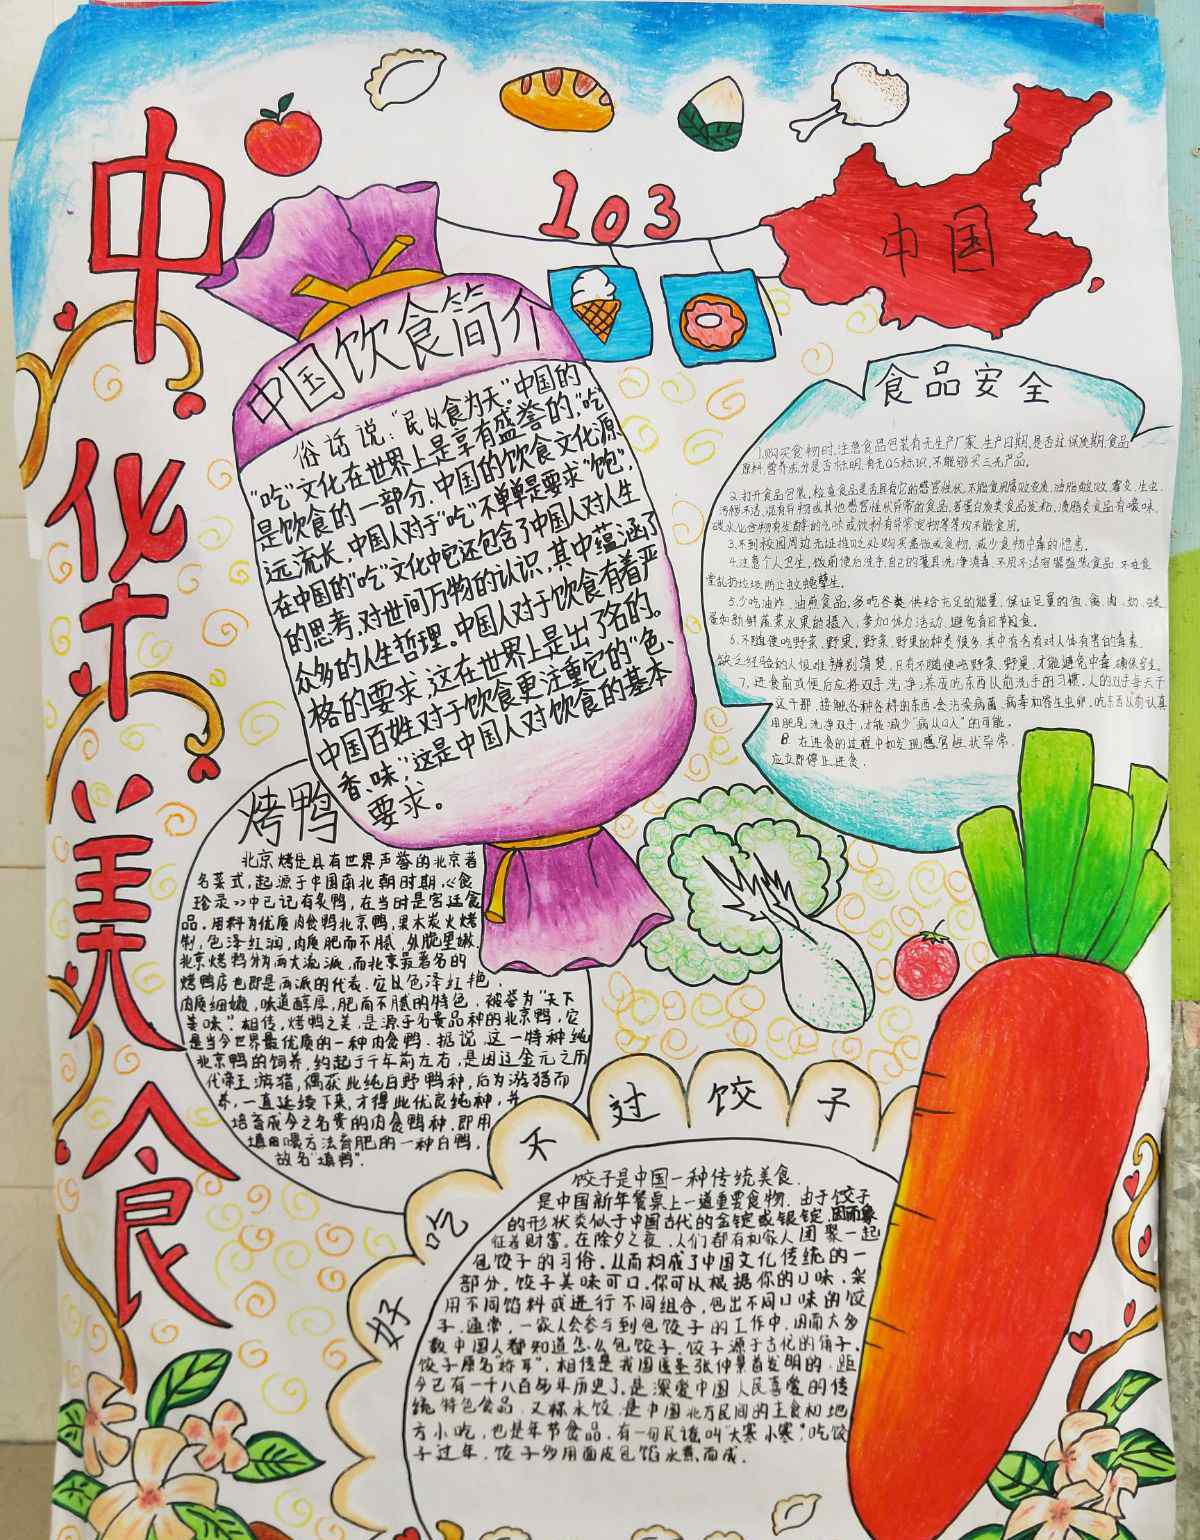 中华美食
103
中国
中国饮食简介
俗话说：“民以食为天”中国的
“吃”文化在世界上是享有盛誉的，“吃”
是饮食的一部分，中国的饮食文化源
远流长，中国人对于“吃”不单单是要求“饱”，
在中国的“吃”文化中它还包含了中国人对人生
的思考，对世间万物的认识，其中蕴涵了
众多的人生哲理。中国人对于饮食有着严
格的要求，这在世界上是出了名的。
中国百姓对于饮食更注重它的“色、
香、味”，这是中国人对饮食的基本
要求。
食品安全
1.购买食物时,注意食品包装有无生产厂家,生产日期,是否过保质期,食品
原料,营养成分是否标明,有无QS标识,不能够买三无产品。
2.打开食品包装,检查食品是否具有它的感官性状,不能食用腐败变质,油脂酸败,霉变,生虫,
污秽不洁,混有异物或其他感官性状异常的食品,若蛋白质类食品发粘,渍脂类食品有嚎味,
碳水化合物有发酵的气味或饮料有异常沉物等等均不能食用。
3.不到校园周边无证摊贝之处购买盖饭或食物,减少食物中毒的隐患。
4.注意个人卫生,饭前便后洗手,自己的餐具洗净消毒,不用不洁容器盛装食品,不在食
堂乱扔垃圾,防止蚊蝇孽生。
5.少吃油炸、油煎食品,多吃各类供给充足的能量,保证足量的鱼、禽、肉、奶、豆类、
蛋和新鲜蔬菜水果的摄入,参加体力活动,避免盲目节食。
6.不随便吃野菜、野果,野菜、野果的种类很多,其中有含有对人体有害的毒素,
缺乏经验的人很难辨别清楚,只有不随便吃野菜、野果,才能避免中毒,确保安全。
7.进食前或便后应将双手洗净;养成吃东西以前洗手的习惯,人的双手每天干
这干那,接触各种各样的东西,会沾染病菌、病毒和寄生虫卵,吃东西以前认真
用肥皂洗净双手,才能减少“病从口入”的可能。
8.在进食的过程中如发现感官性状异常,
应立即停止进食.
烤鸭
北京烤是具有世界声誉的北京著
名菜式，起源于中国南北朝时期，《食
珍录》中已记有炙鸭，在当时是宫廷食
品，用料为优质肉食鸭北京鸭，果木炭火烤
制，色泽红润，肉质肥而不腻，外脆里嫩.
北京烤鸭分为两大流派，而北京最著名的
烤鸭店也即是两派的代表.它以色泽红艳，
肉质细嫩，味道醇厚，肥而不腻的特色，被誉为“天下
美味”.相传，烤鸭之美，是源于名贵品种的北京鸭，它
是当今世界最优质的一种肉食鸭.据说，这一特种纯
北京鸭的饲养，约起于千年前左右，是因辽金元之历
代帝王游猎，偶获此纯白野鸭种，后为游猎而
养，一直延续下来，才得此优良纯种，并
培育成今之名贵的肉食鸭种.即用
填喂方法育肥的一种白鸭，
故名“填鸭”.
好吃不过饺子
饺子是中国一种传统美食.
是中国新年餐桌上一道重要食物.由于饺子
的形状类似于中国古代的金锭或银锭，因而象
征着财富，在除夕之夜，人们都有和家人团聚一起
包饺子的习俗，从而构成了中国文化传统的一
部分，饺子美味可口，你可以根据你的口味，采
用不同馅料或进行不同组合，包出不同口味的饺
子.通常，一家人会参与到包饺子的工作中，因而大多
数中国人都知道怎么包饺子.饺子源于古代的角子.
饺子原名“娇耳”，相传是我国医圣张仲景首发明的，距
今已有一千八百多年历史了，是深受中国人民喜爱的传
统特色食品，又称水饺，是中国北方民间的主食和地
方小吃，也是年节食品，有一句民谣叫“大寒小寒”，吃饺
子过年，饺子多用面皮包馅水煮而成.